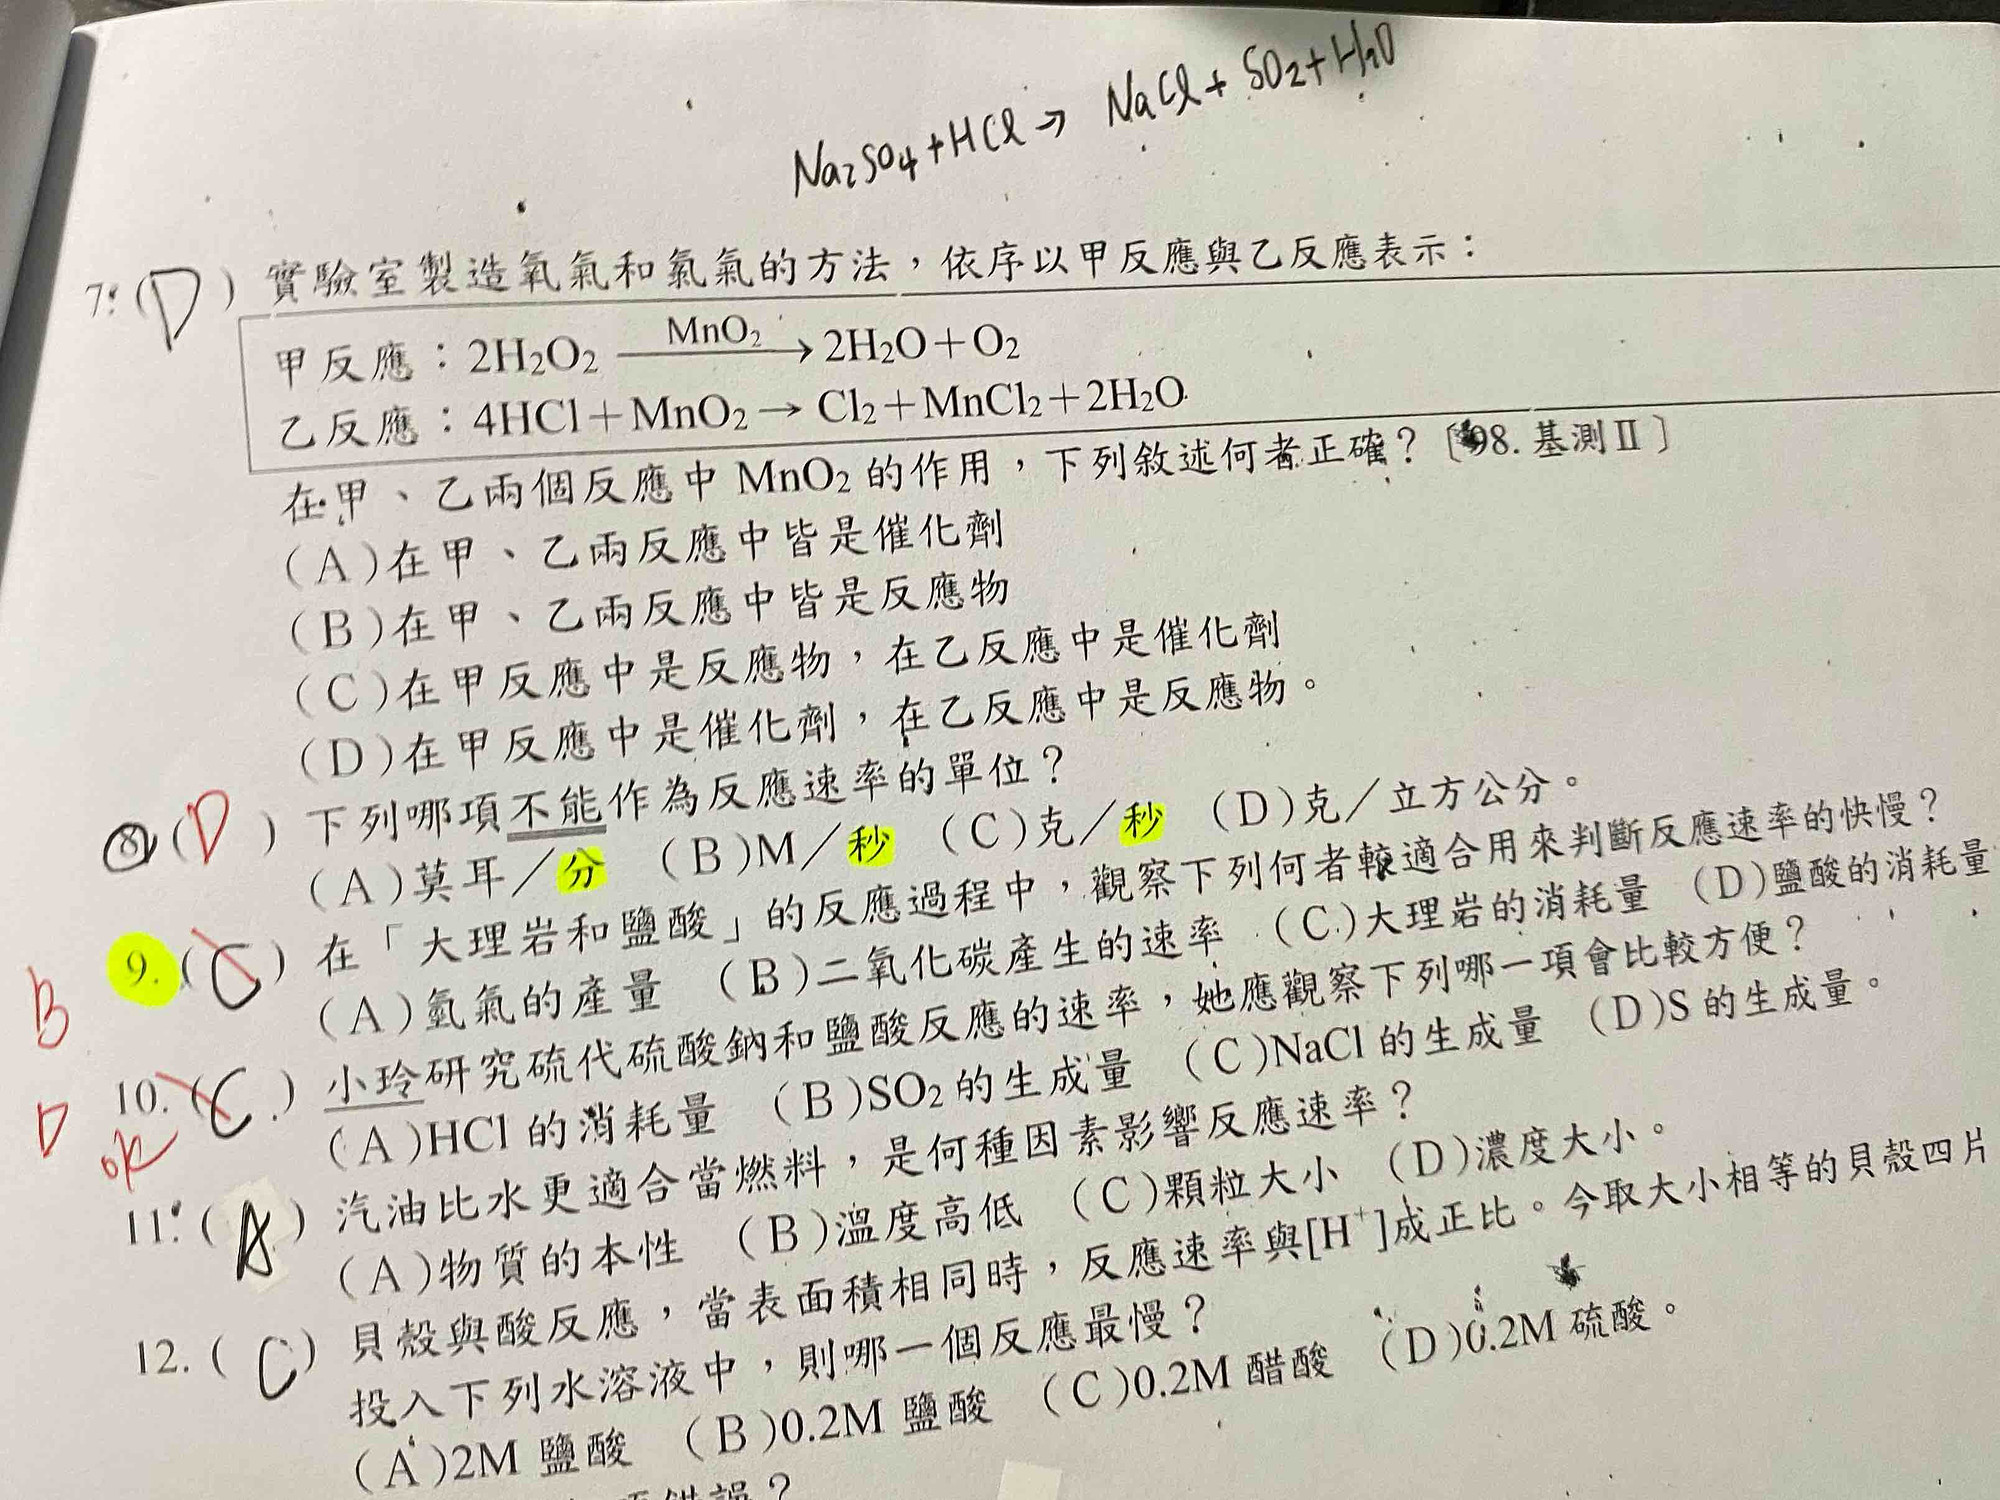 Na₂SO₄+HCl→ NaCl+SO₂+H₂O
7.(D)實驗室製造氧氣和氯氣的方法，依序以甲反應與乙反應表示：
甲反應：2H₂O₂ MnO₂→ 2H₂O+O₂
乙反應：4HCl+MnO₂→Cl₂+MnCl₂+2H₂O
在甲、乙兩個反應中MnO₂的作用，下列敘述何者正確？〔98.基測Ⅱ〕
(A)在甲、乙兩反應中皆是催化劑
(B)在甲、乙兩反應中皆是反應物
(C)在甲反應中是反應物，在乙反應中是催化劑
(D)在甲反應中是催化劑，在乙反應中是反應物。
8(D)下列哪項不能作為反應速率的單位？
(A)莫耳／分 (B)M／秒 (C)克／秒 (D)克／立方公分。
B 9.(C)在「大理岩和鹽酸」的反應過程中，觀察下列何者較適合用來判斷反應速率的快慢？
(A)氫氣的產量 (B)二氧化碳產生的速率 (C)大理岩的消耗量 (D)鹽酸的消耗量
D ok 10.(C)小玲研究硫代硫酸鈉和鹽酸反應的速率，她應觀察下列哪一項會比較方便？
(A)HCl的消耗量 (B)SO₂的生成量 (C)NaCl的生成量 (D)S的生成量。
11.(A)汽油比水更適合當燃料，是何種因素影響反應速率？
(A)物質的本性 (B)溫度高低 (C)顆粒大小 (D)濃度大小。
12.(C)貝殼與酸反應，當表面積相同時，反應速率與[H⁺]成正比。今取大小相等的貝殼四片
投入下列水溶液中，則哪一個反應最慢？
(A)2M鹽酸 (B)0.2M鹽酸 (C)0.2M醋酸 (D)0.2M硫酸。
錯誤？